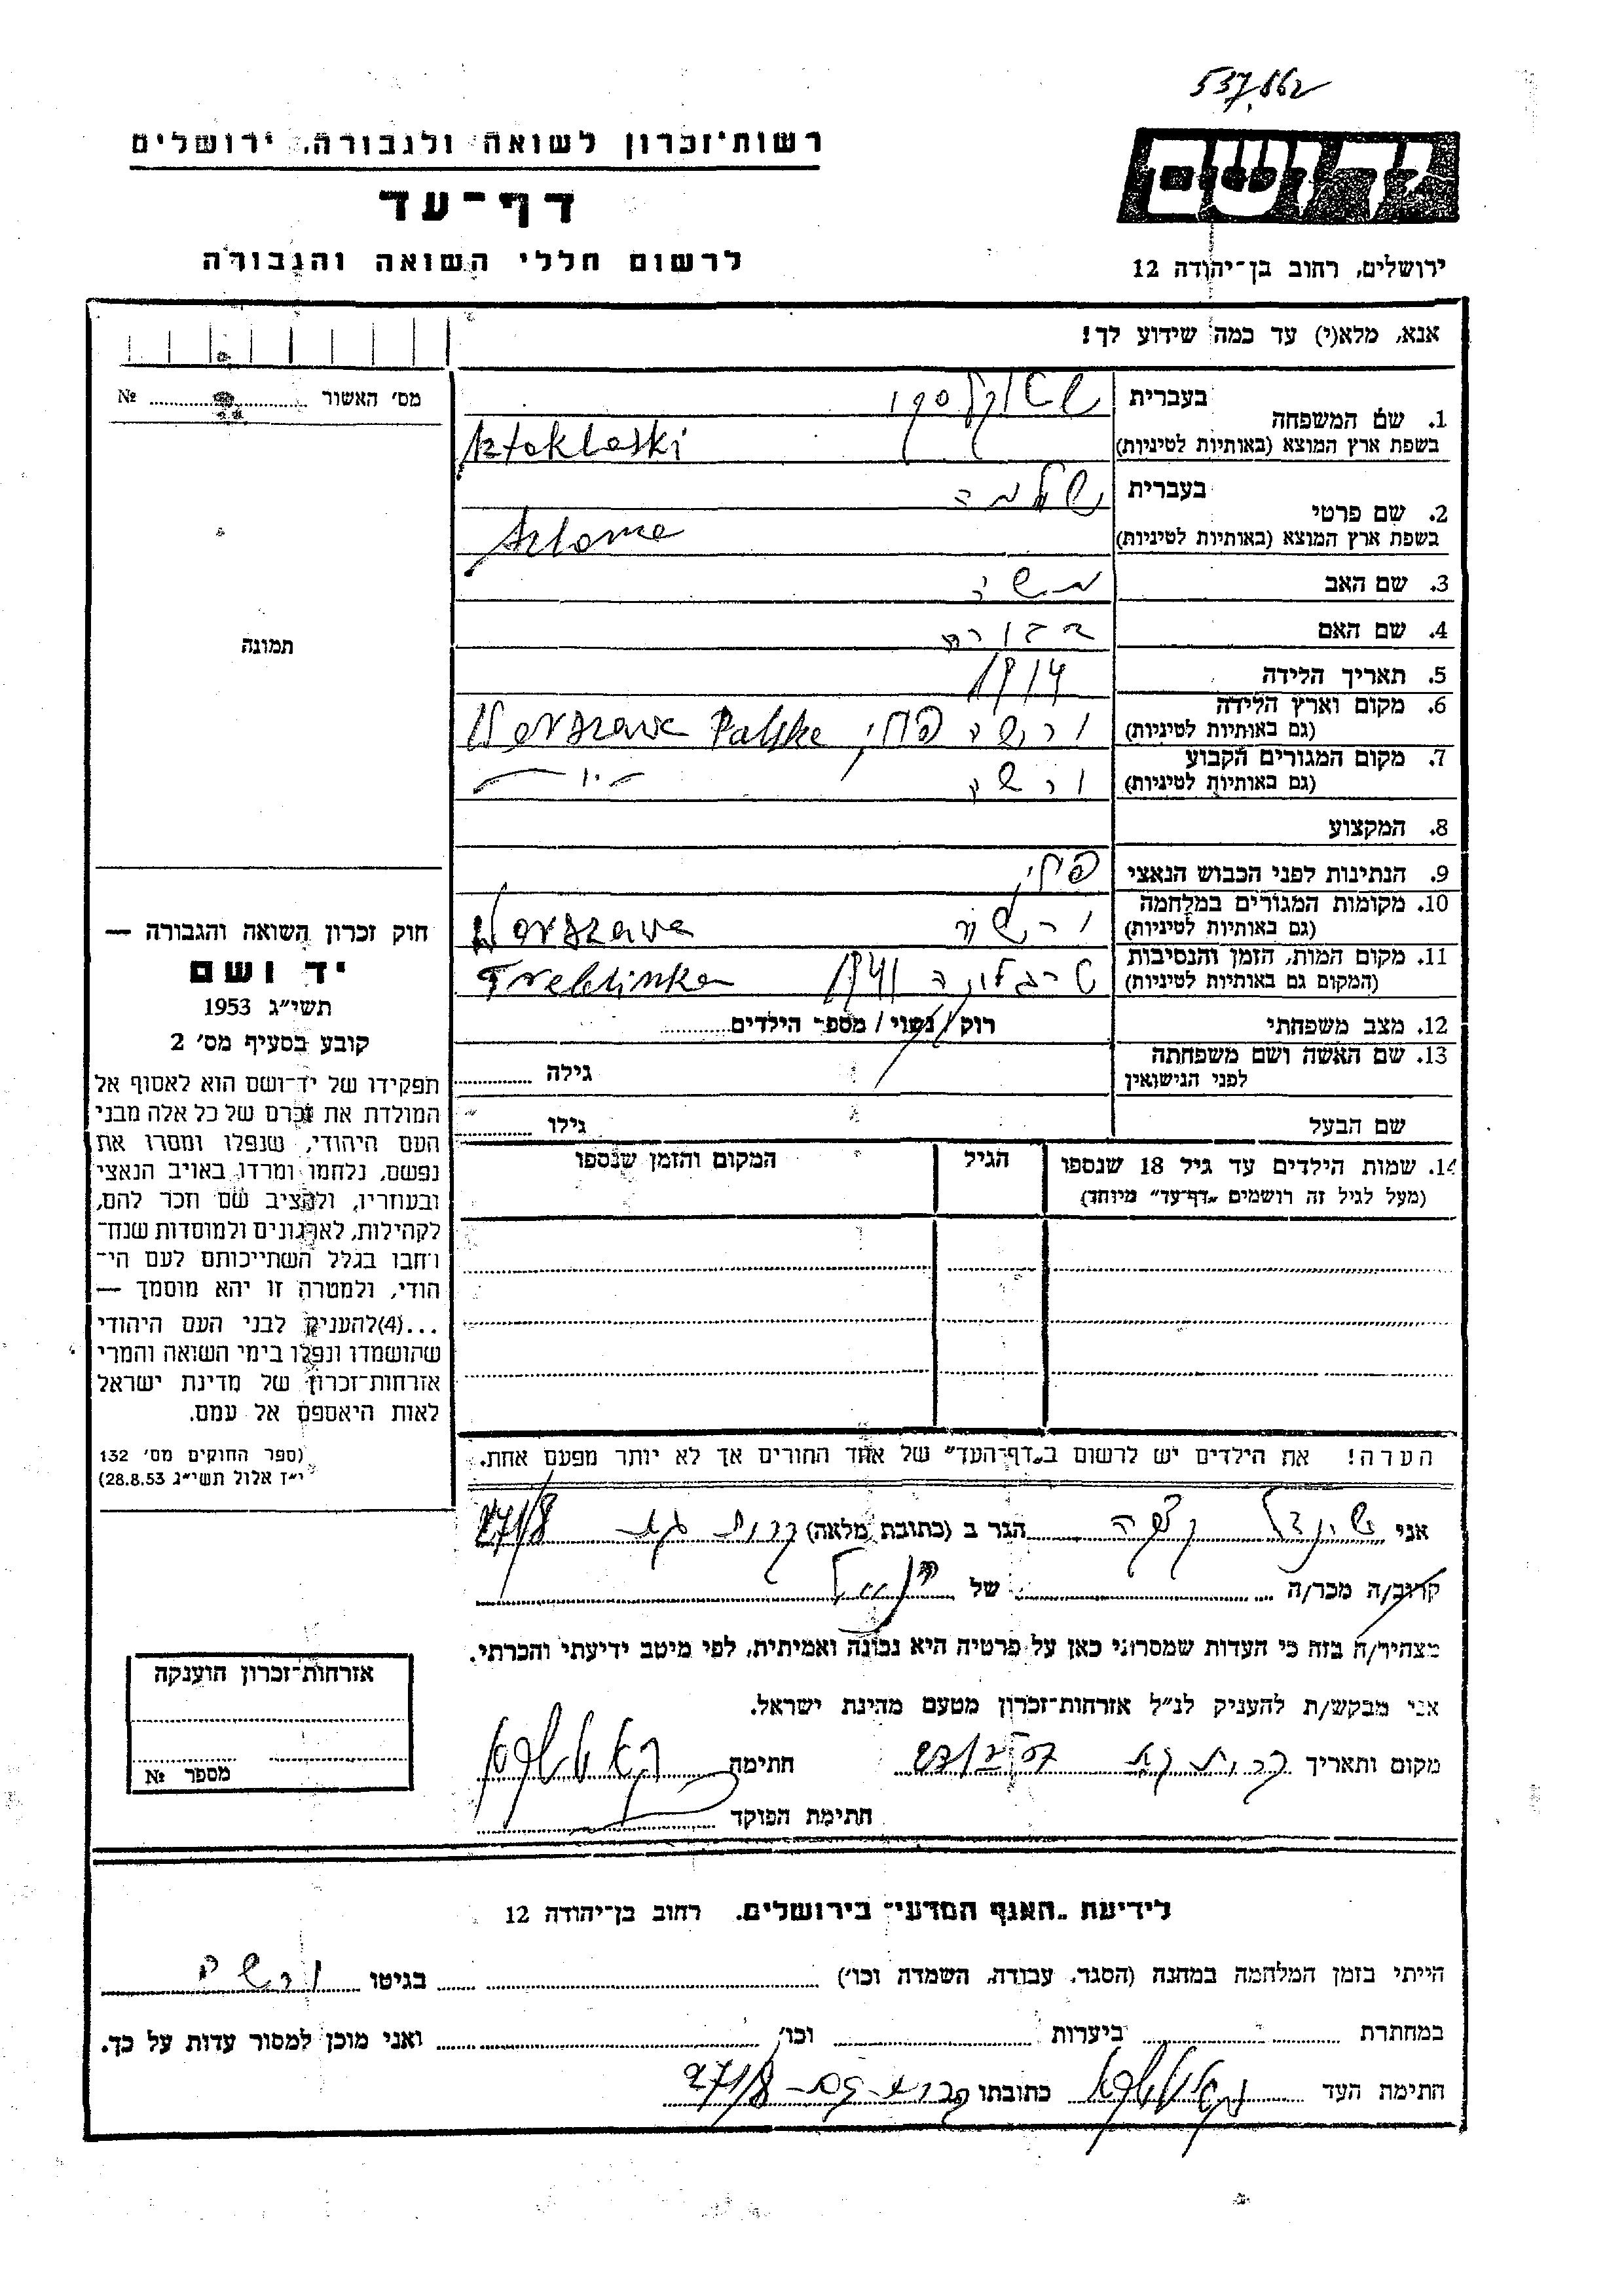 537,862
רשות־זכרון לשואה ולגבורה, ירושלים
דף־עד
לרשום חללי השואה והגבורה
יד ושם
ירושלים, רחוב בן־יהודה 12
אנא, מלא(י) עד כמה שידוע לך!
מס׳ האשור № 
1. שם המשפחה
בעברית
בשפת ארץ המוצא (באותיות לטיניות)
2. שם פרטי
בעברית שלמה
בשפת ארץ המוצא (באותיות לטיניות) Szlome
3. שם האב משה
4. שם האם
5. תאריך הלידה 1914
6. מקום וארץ הלידה
(גם באותיות לטיניות) ורשה פולין Warszawa Polska
7. מקום המגורים הקבוע
(גם באותיות לטיניות) ורשה
8. המקצוע
9. הנתינות לפני הכבוש הנאצי פולין
10. מקומות המגורים במלחמה
(גם באותיות לטיניות) ורשה Warszawa
11. מקום המות, הזמן והנסיבות
(המקום גם באותיות לטיניות) טרבלינקה 1941 Treblinka
12. מצב משפחתי רוק / נשוי / מספר הילדים
13. שם האשה ושם משפחתה
לפני הנישואין גילה
שם הבעל גילו
14. שמות הילדים עד גיל 18 שנספו
(מעל לגיל זה רושמים „דף־עד״ מיוחד)
הגיל
המקום והזמן שנספו
תמונה
חוק זכרון השואה והגבורה —
יד ושם
תשי״ג 1953
קובע בסעיף מס׳ 2
תפקידו של יד־ושם הוא לאסוף אל
המולדת את זכרם של כל אלה מבני
העם היהודי, שנפלו ומסרו את
נפשם, נלחמו ומרדו באויב הנאצי
ובעוזריו, ולהציב שם וזכר להם,
לקהילות, לארגונים ולמוסדות שנח־
רחבו בגלל השתייכותם לעם הי־
הודי, ולמטרה זו יהא מוסמך —
...(4)להעניק לבני העם היהודי
שהושמדו ונפלו בימי השואה והמרי
אזרחות־זכרון של מדינת ישראל
לאות היאספם אל עמם.
(ספר החוקים מס׳ 132
י״ז אלול תשי״ג 28.8.53)
הערה! את הילדים יש לרשום ב„דף־העד״ של אחד ההורים אך לא יותר מפעם אחת.
אני הגר ב (כתובת מלאה) קרית גת 27/8
קרוב/ה מכר/ה של
מצהיר/ה בזה כי העדות שמסרתי כאן על פרטיה היא נכונה ואמיתית, לפי מיטב ידיעתי והכרתי.
אני מבקש/ת להעניק לנ״ל אזרחות־זכרון מטעם מדינת ישראל.
מקום ותאריך קרית גת חתימה
חתימת הפוקד
אזרחות־זכרון הוענקה
מספר №
לידיעת „האגף המדעי״ בירושלים. רחוב בן־יהודה 12
הייתי בזמן המלחמה במחנה (הסגר, עבודה, השמדה וכו׳) בגיטו ורשה
במחתרת ביערות וכו׳ ואני מוכן למסור עדות על כך.
חתימת העד כתובתו קרית־גת־ 27/8